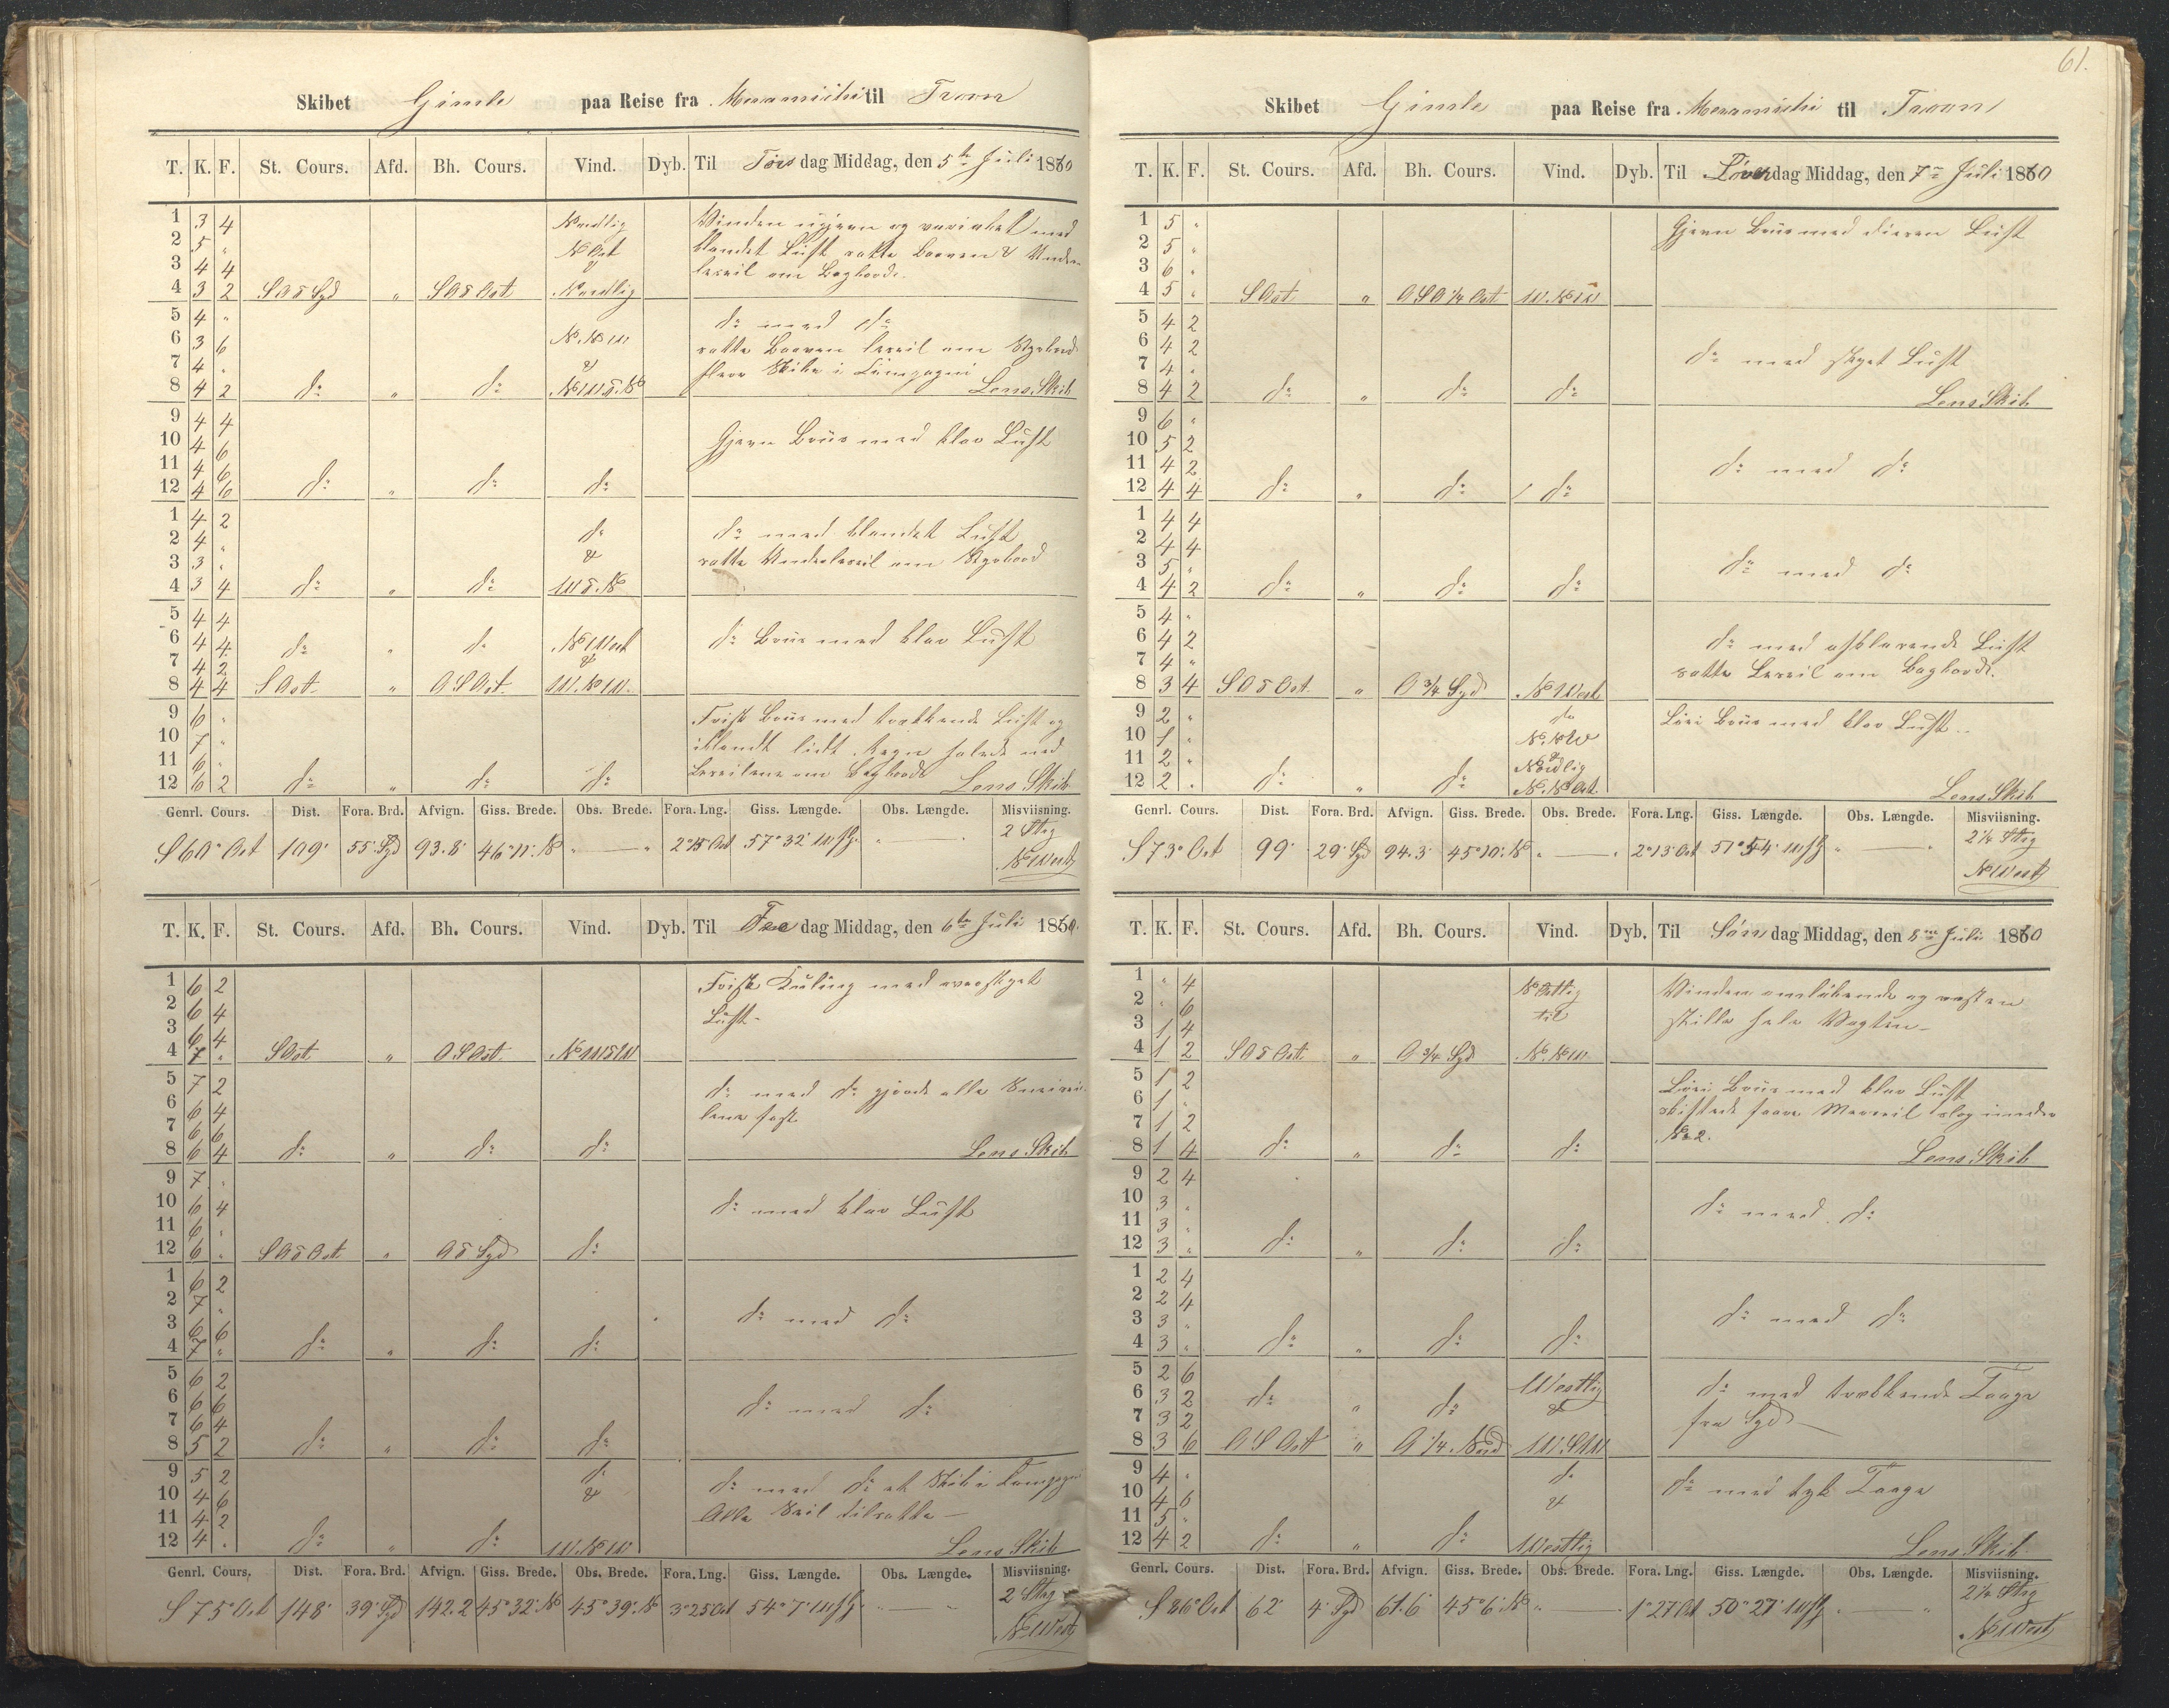 61.
Skibet Gimle paa Reise fra Meramichi til Troon
T. K. F. St. Cours. Afd. Bh. Cours. Vind. Dyb. Til Torsdag Middag, den 5te Juli 1860
1 3 4 Nordlig Vinden ujevn og variabel med
2 5 " N Ost blandet Luft satte Boven & Under
3 4 4 & læseil om Bagbord.
4 3 2 S O δ Syd " S O δ Ost Nordlig
5 4 " do med do
6 3 6 N. N W. satte Boven læseil om Styrbord
7 4 " & flere Skibe i Compagni
8 4 2 do " do N W δ. N Lens Skib
9 4 4
10 4 6 Gjevn Bris med klar Luft
11 4 6
12 4 6 do " do do
1 4 2 do do med blandet Luft
2 4 " & satte Underlæseil om Styrbord
3 3 "
4 3 4 do " do W δ. N
5 4 4
6 4 4 do " do N West do Bris med klar Luft
7 4 2 &
8 4 4 S Ost " O S Ost W. N W.
9 6 " Frisk Bris med trækkende Luft og
10 7 " iblandt lidt Regn halede ned
11 6 " Læseilene om Bagbord
12 6 2 do " do do Lens Skib
Genrl. Cours. Dist. Fora. Brd. Afvign. Giss. Brede. Obs. Brede. Fora. Lng. Giss. Længde. Obs. Længde. Misviisning.
S 60° Ost 109' 55' Syd 93.8' 46° 11' N " — " 2° 15' Ost 57° 32' Wstg. " — " 2 Strg
N West
T. K. F. St. Cours. Afd. Bh. Cours. Vind. Dyb. Til Fredag Middag, den 6te Juli 1860.
1 6 2 Frisk Kuling med overskyet
2 6 4 Luft -
3 6 4
4 7 " S Ost " O S Ost N W δ W
5 7 2 do med do gjorde alle
6 6 4 fast
7 6 6
8 6 4 do " do do Lens Skib
9 7 "
10 6 4 do med klar Luft
11 6 "
12 6 " S O δ Ost " O δ Syd do
1 6 2
2 7 " do med do
3 6 6
4 7 " do " do do
5 6 2
6 6 6 do med do
7 6 4
8 5 2 do " do do
9 5 2 do do med do et Skib i Compagni
10 4 6 & Alle Seil tilsatte —
11 4 2
12 4 " do " do W. N W Lens Skib
Genrl. Cours. Dist. Fora. Brd. Afvign. Giss. Brede. Obs. Brede. Fora. Lng. Giss. Længde. Obs. Længde. Misviisning.
S 75° Ost 148' 39' Syd 142.2 45° 32' N 45° 39' N 3° 25 Ost 54° 7' Wstg. " — " 2 Strg
N West
Skibet Gimle paa Reise fra Meramichi til Troon
T. K. F. St. Cours. Afd. Bh. Cours. Vind. Dyb. Til Løverdag Middag, den 7de Juli 1860
1 5 " Gjevn Bris med diesen Luft
2 5 "
3 6 "
4 5 " S Ost " O S O 1/4 Ost W. N W
5 4 2
6 4 2 do med skyet Luft
7 4 "
8 4 2 do " do do Lens Skib
9 6 "
10 5 2
11 4 2 do med do
12 4 4 do " do do
1 4 4
2 4 4
3 5 " do med do
4 4 2 do " do do
5 4 "
6 4 2 do med afklarende Luft
7 4 " satte Læseil om Bagbord.
8 3 4 S O δ Ost " O 3/4 Syd N West
9 2 " do Løi Bris med klar Luft -
10 1 " N. N W
11 2 " & Nordlig
12 2 " do " do N. N Ost Lens Skib
Genrl. Cours. Dist. Fora. Brd. Afvign. Giss. Brede. Obs. Brede. Fora. Lng. Giss. Længde. Obs. Længde. Misviisning.
S 73° Ost 99' 29' Syd 94.3' 45° 10' N " — " 2° 13' Ost 51° 54' Wstg " — " 2 1/4 Strg
N West
T. K. F. St. Cours. Afd. Bh. Cours. Vind. Dyb. Til Søndag Middag, den 8de Juli 1860
1 " 4 N Ostlig Vinden omløbende og næsten
2 " 6 til stille hele Vagten -
3 1 4
4 1 2 S O δ Ost " O 3/4 Syd N. N W.
5 1 2 Løi Bris med klar Luft
6 1 " skiftede Mersseil slog under
7 1 2 No 2.
8 1 4 do " do do Lens Skib
9 2 4
10 3 " do med do
11 3 "
12 3 " do " do do
1 2 4
2 2 4 do med do
3 3 "
4 3 " do " do do
5 2 6 Westlig do med trækkende Taage
6 3 2 do " do & fra Syd —
7 3 2
8 3 6 O S Ost " O 1/4 Nord W. S W
9 4 " do do med tyk Taage
10 4 6 &
11 5 "
12 4 2 do " do Westlig Lens Skib
Genrl. Cours. Dist. Fora. Brd. Afvign. Giss. Brede. Obs. Brede. Fora. Lng. Giss. Længde. Obs. Længde. Misviisning.
S 86° Ost 62' 4' Syd 61.6' 45° 6' N " — " 1° 27 Ost 50° 27' Wstg " — " 2 1/4 Strg
N West